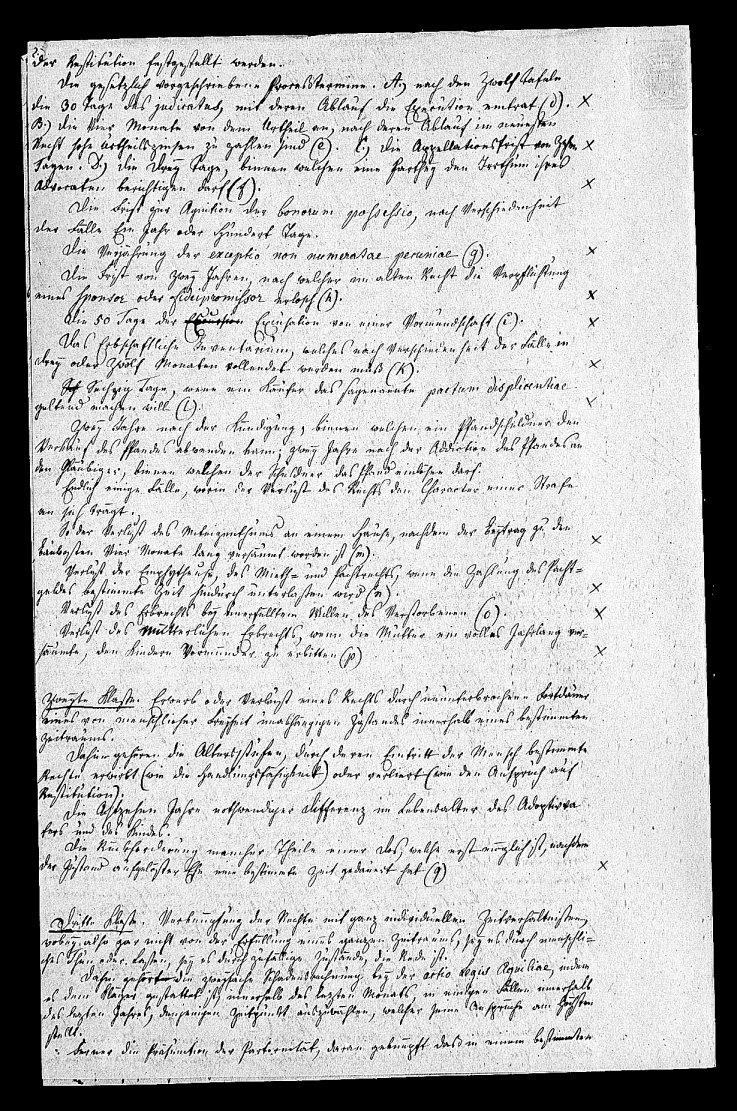 der Restitution festgestellt werden.
Die gesetzlich vorgeschriebenen Processtermine. A.) nach den Zwölf Tafeln
die 30 Tage des judicatus, mit deren Ablauf die Execution eintrat (d). ×
B.) die vier Monate von dem Urtheil an, nach deren Ablauf im neuesten
Recht hohe Urtheilszinsen zu zahlen sind (e). C.) die Appellationsfrist von Zehn ×
Tagen. D.) die drey Tage, binnen welchen eine Parthey den Irrthum ihres
Advocaten berichtigen darf (f). ×
Die Frist zur Agnition der bonorum possessio, nach Verschiedenheit
der Fälle Ein Jahr oder Hundert Tage.
Die Verjährung der exceptio non numeratae pecuniae (g). ×
Die Frist von zwey Jahren, nach welcher im alten Recht die Verpflichtung
eines sponsor oder fidepromissor erlosch (h). ×
Die 50 Tage der Excusation von einer Vormundschaft (i). ×
Das Erbschaftliche Inventarium, welches nach Verschiedenheit der Fälle in
drey oder Zwölf Monaten vollendet werden muß (k). ×
Sechzig Tage, wenn ein Käufer das sogenannte pactum displicentiae
geltend machen will (l). ×
Zwey Jahre nach der Kündigung, binnen welchen ein Pfandschuldner den
Verkauf des Pfandes abwenden kann; zwey Jahre nach der Addiction des Pfandes an
den Gläubiger, binnen welchen der Schuldner das Pfand einlösen darf.
Endlich einige Fälle, worin der Verlust des Rechts den Character einer Strafe
an sich trägt.
So der Verlust des Miteigenthums an einem Hause, nachdem der Beytrag zu den
Baukosten vier Monate lang versäumt worden ist (m). ×
Verlust der Emphyteuse, des Mieth- und Pachtrechts, wenn die Zahlung des Pacht-
geldes bestimmte Zeit hindurch unterlassen wird (n). ×
Verlust des Erbrechts bey unerfülltem Willen des Verstorbenen (o). ×
Verlust des mütterlichen Erbrechts, wenn die Mutter ein volles Jahrlang ver-
säumte, den Kindern Vormünder zu erbitten (p) ×
Zweyte Klasse. Erwerb oder Verlust eines Rechts durch ununterbrochene Fortdauer
eines von menschlicher Freyheit unabhängigen Zustandes innerhalb eines bestimmten
Zeitraums.
Dahin gehören die Altersstufen, durch deren Eintritt der Mensch bestimmte
Rechte erwirbt (wie die Handlungsfähigkeit) oder verliert (wie den Anspruch auf
Restitution).
Die Achtzehen Jahre nothwendiger Differenz im Lebensalter des Adoptivva-
ters und des Kindes.
Die Rückforderung mancher Theile einer Dos, welche erst möglich ist, nachdem
der Zustand aufgelöster Ehe eine bestimmte Zeit gedauert hat (q) ×
Dritte Klasse. Verknüpfung der Rechte mit ganz individuellen Zeitverhältnissen,
wobey also gar nicht von der Erfüllung eines ganzen Zeitraums, sey es durch menschli-
ches Thun oder Lassen, sey es durch zufällige Zustände, die Rede ist.
Dahin gehört die zweyfache Schadensberechnung bey der actio legis Aquiliae, indem
es dem Kläger gestattet ist, innerhalb des letzten Monats, in einigen Fällen innerhalb
des letzten Jahres, denjenigen Zeitpunkt auszuwählen, welcher seine Ansprüche am höchsten
stellt.
Ferner die Präsumtion der Paternität, daran geknüpft daß in einem bestimmten